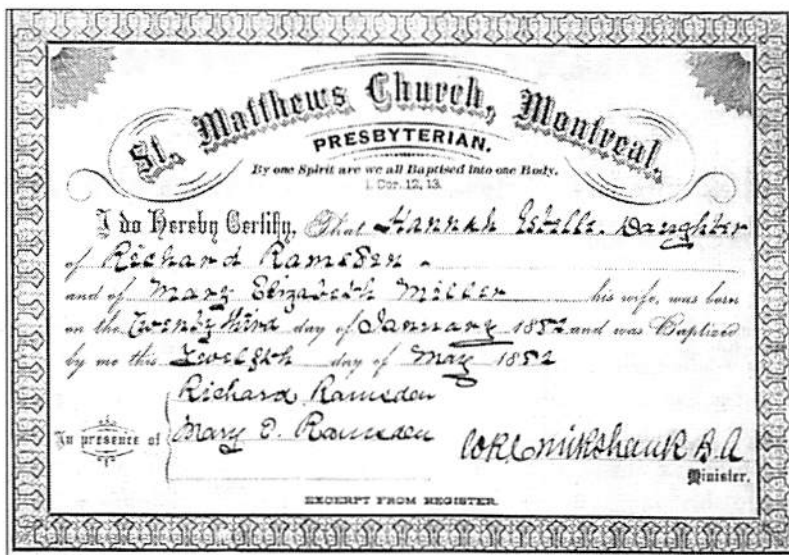 St. Matthews Church, Montreal.
PRESBYTERIAN.
By one Spirit are we all Baptised into one Body.
1. Cor. 12, 13.
I do Hereby Certify, That Hannah Estelle, Daughter
of Richard Ramsden
and of Mary Elizabeth Miller his wife, was born
on the Twenty third day of January 1882 and was Baptized
by me this Twelfth day of May 1882
Richard Ramsden
In presence of Mary E. Ramsden
B.A
Minister.
EXCERPT FROM REGISTER.